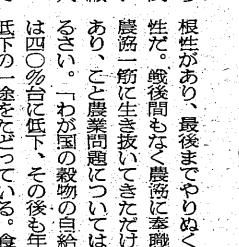 根性があり、最後までやりぬく
性だ。戦後間もなく農協に奉職
農協一筋に生き抜いてきただけ
あり、こと農業問題については
るさい。「わが国の穀物の自給
は四〇％台に低下、その後も年
低下の一途をたどっている。食